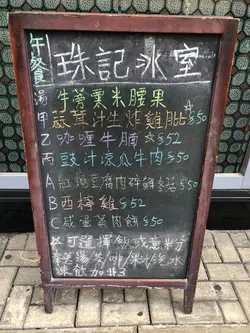 午餐
珠記冰室
湯 牛蒡粟米腰果
甲 豉蓉汁生炸雞髀$50
乙 咖喱牛腩 $52
丙 豉汁涼瓜牛肉$50
A 紅燒豆腐肉碎鮮冬菇$50
B 西檸雞$52
C 咸蛋蒸肉餅$50
以可選擇飯或意粉
奉送湯/咖啡/果汁汽水
凍飲加$3